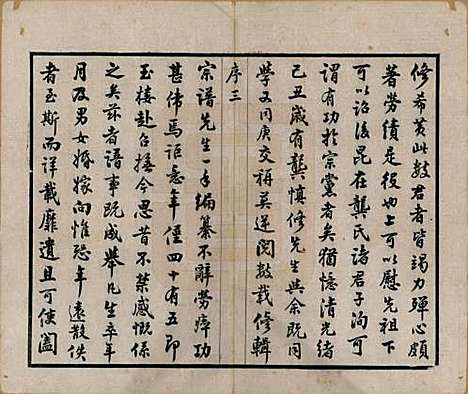 修希黄此數君者皆竭力殫心頗
著勞績是役也上可以慰先祖下
可以詒後昆在龔氏諸君子洵可
謂有功於宗黨者矣猶憶清光緒
己丑歲有龔慎修先生與余既同
學又同庚交稱莫逆閱數載修輯
序三
宗譜先生一手編纂不辭勞瘁功
甚偉焉詎意年僅四十有五即
玉樓赴召撫今思昔不禁感慨係
之矣茲者譜事既成舉凡生卒年
月及男女婚嫁向惟恐年遠散佚
者至斯而詳載靡遺且可使闔